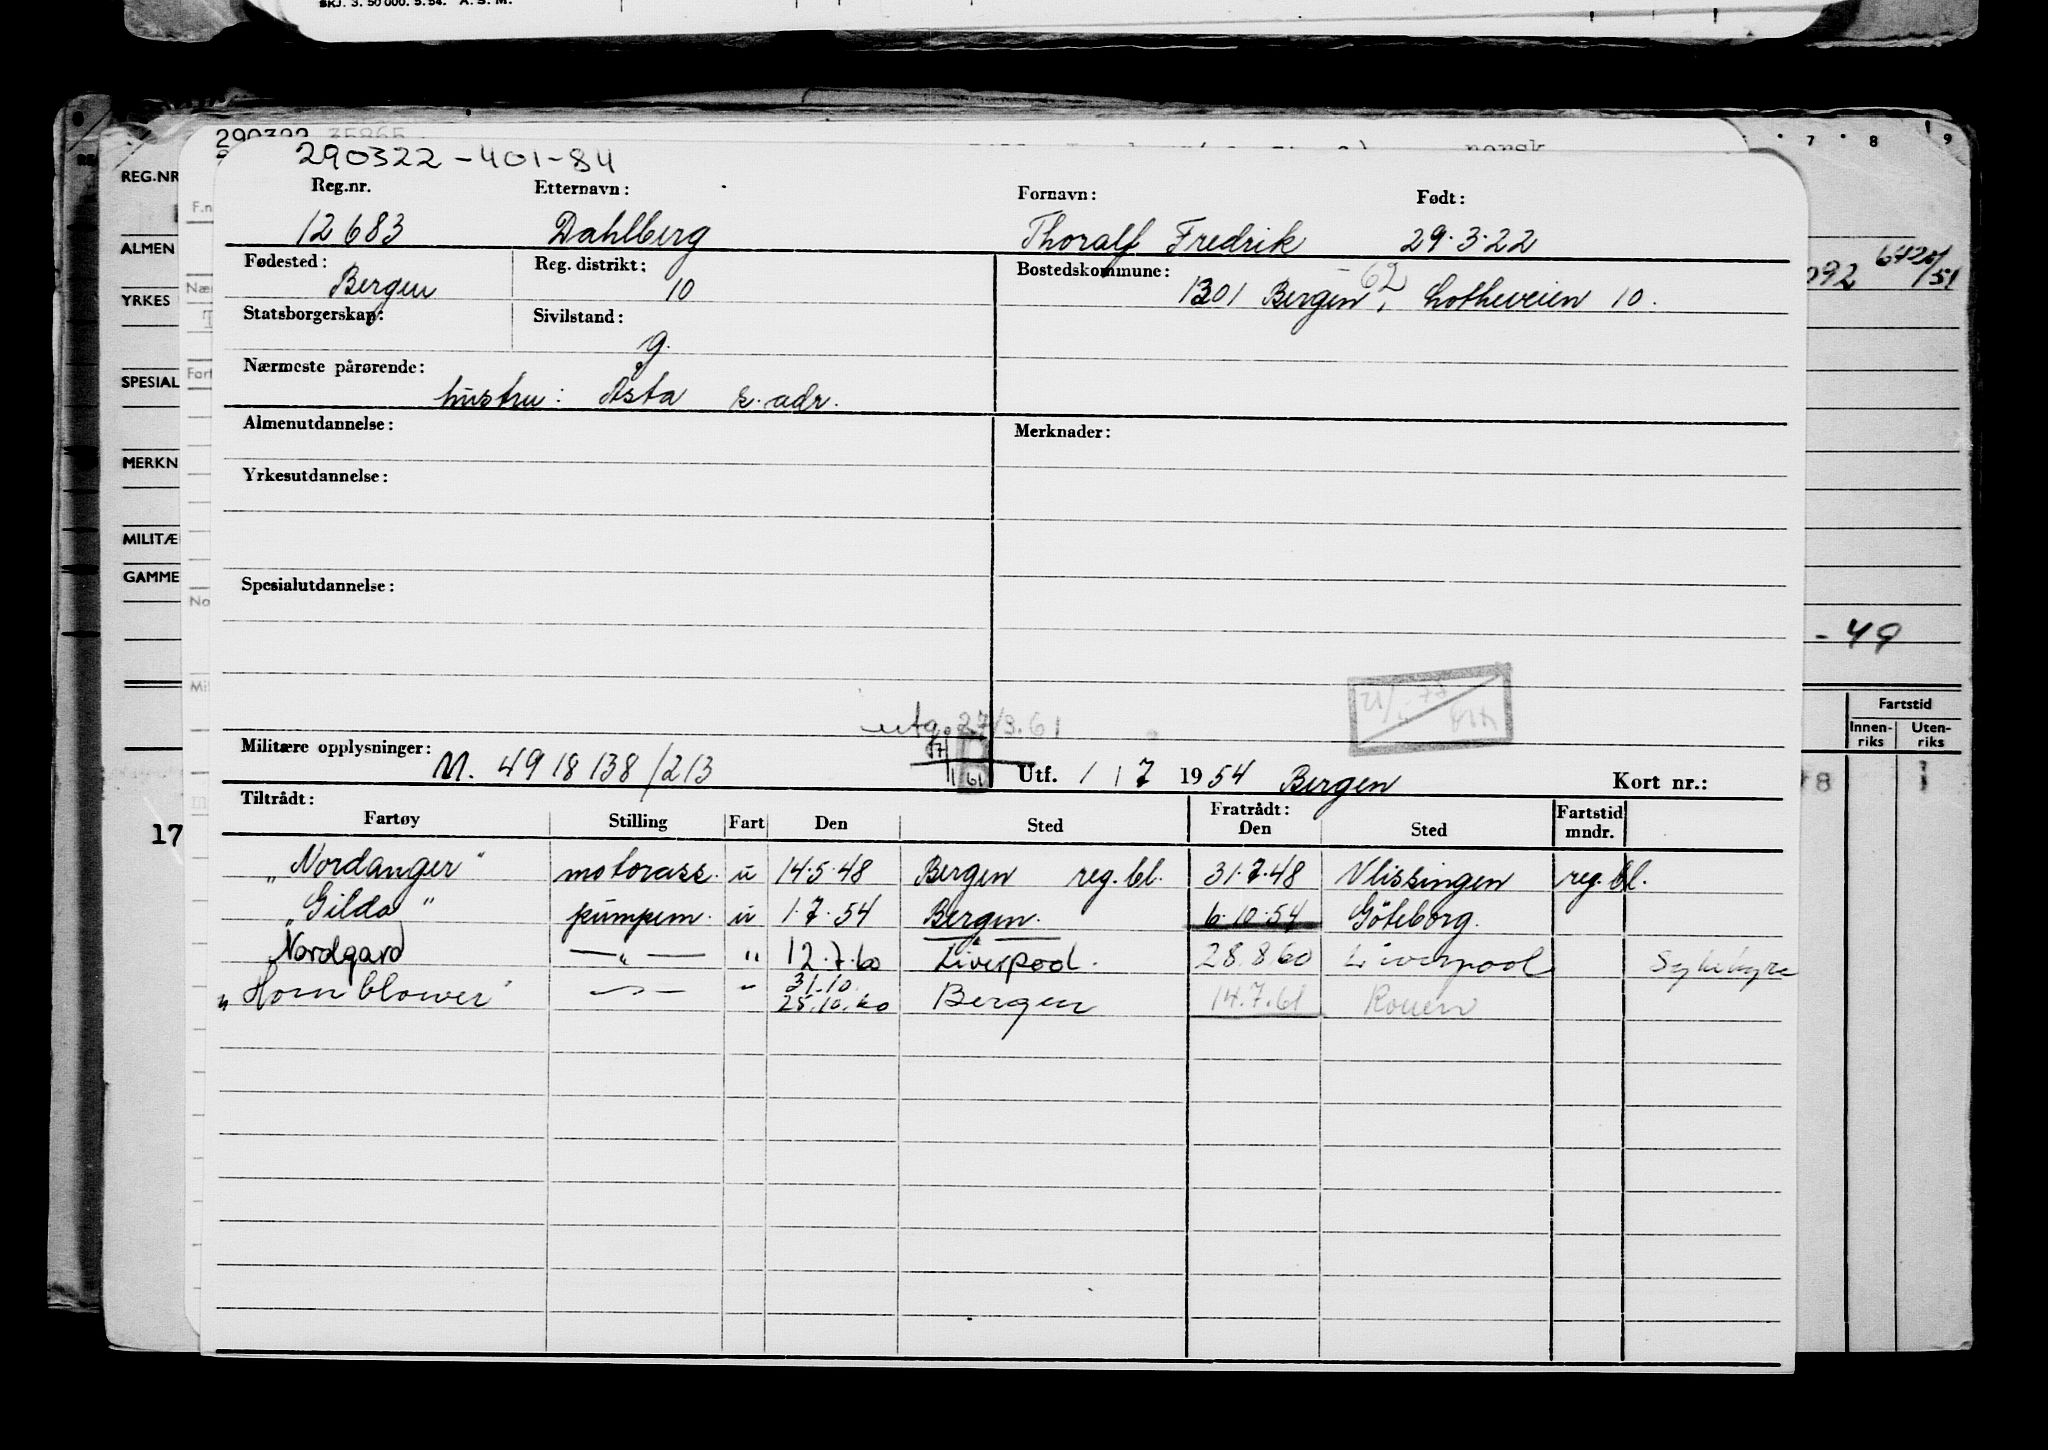 SKJ. 3. 50 000. 5. 54. A. S. M.
7 8 9
290322 35865
norsk
290322-401-84
REG.NR
Reg.nr. Etternavn: Fornavn: Født:
12683 Dahlberg Thoralf Fredrik 29.3.22
ALMEN
Fødested: Reg. distrikt: Bostedskommune:
Bergen 10 1301 Bergen, Lotheveien 10.
62
092 6720/51
YRKES
Statsborgerskap: Sivilstand:
g.
Nærmeste pårørende:
hustru: Åsta s. adr.
SPESIAL
Almenutdannelse: Merknader:
MERKN
Yrkesutdannelse:
MILITÆ
GAMME
Spesialutdannelse:
-49
utg. 27/3.61
Militære opplysninger: M. 4918138/213
Utf. 1/7 1954 Bergen Kort nr.:
Fartstid
Innen-riks Uten-riks
Tiltrådt: Fratrådt:
Fartøy Stilling Fart Den Sted Den Sted Fartstid mndr.
17
"Nordanger" motorass. u 14.5.48 Bergen reg. bl. 31.7.48 Vlissingen reg. bl.
"Gilda" pumpem. u 1.7.54 Bergen. 6.10.54 Göteborg.
Nordgard —"— " 12.7.60 Liverpool. 28.8.60 Liverpool Sykehyre
31.10.
"Hornblower" —"— " 25.10.60 Bergen 14.7.61 Rouen